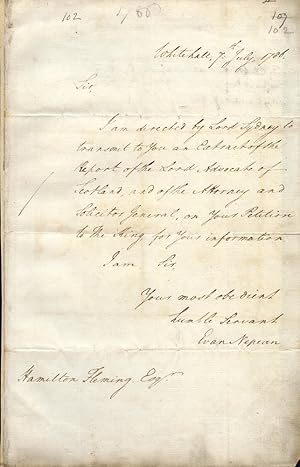 102
107
102
Whitehall, 7th July, 1786.
Sir,
I am directed by Lord Sydney to
transmit to You an Extract of the
Report of the Lord Advocate of
Scotland, and of the Attorney and
Solicitor General, on Your Petition
to The King for Your information
I am Sir
Your most obedient
humble Servant
Evan Nepean
Hamilton Fleming Esqr.